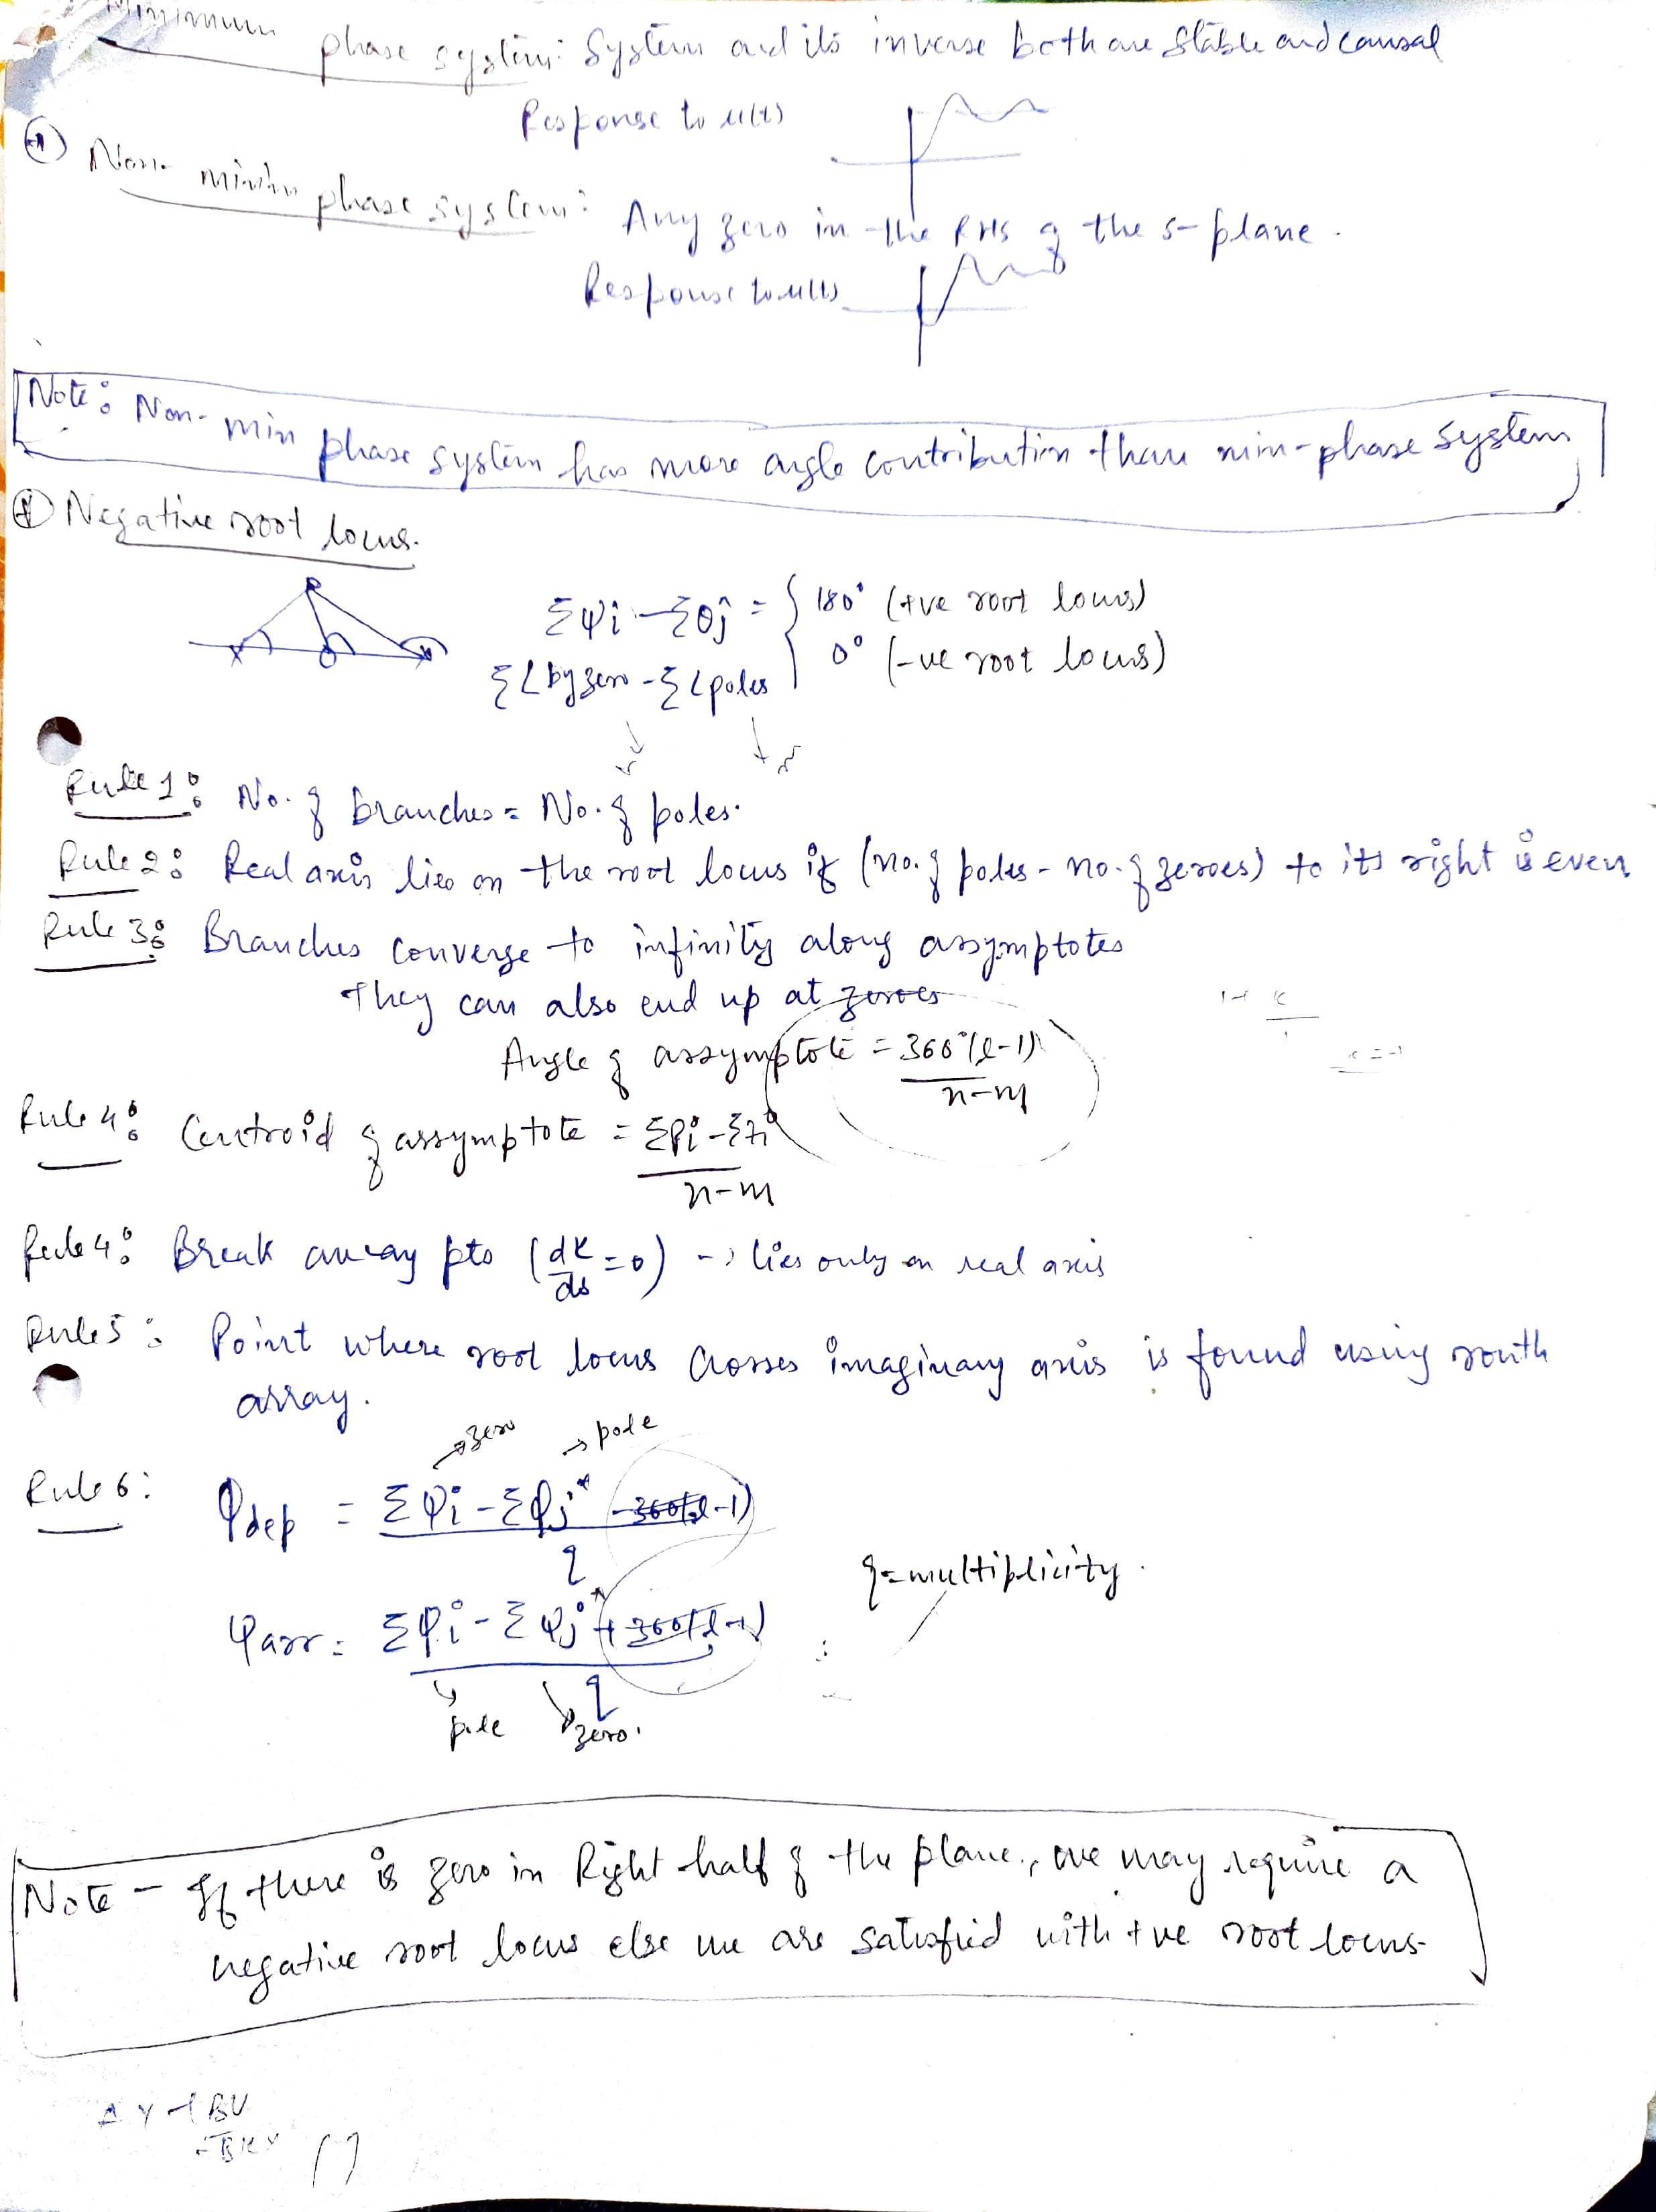 Minimum phase system: System and its inverse both are stable and causal
Response to u(t)
Non-minim phase system: Any zero in the RHS of the s-plane.
Response to u(t)
Note: Non-min phase system has more angle contribution than min-phase system
Negative root locus.
Σψi - Σθj = { 180° (+ve root locus)
0° (-ve root locus)
Σ∠by zero - Σ∠poles
Rule 1: No. of branches = No. of poles.
Rule 2: Real axis lies on the root locus if (no. of poles - no. of zeroes) to its right is even
Rule 3: Branches converge to infinity along assymptotes
They can also end up at zeroes
Angle of assymptote = 360°(l-1)
n-m
Rule 4: Centroid of assymptote = Σpi - Σzi
n-m
Rule 4: Break away pts (dk/ds = 0) → lies only on real axis
Rule 5: Point where root locus crosses imaginary axis is found using routh
array.
→ zero → pole
Rule 6: φdep = Σψi - Σφj* - 360(l-1)
q
q = multiplicity.
ψarr = Σφi - Σψj* + 360(l-1)
q
pole zero.
Note - If there is zero in Right half of the plane, we may require a
negative root locus else we are satisfied with +ve root locus